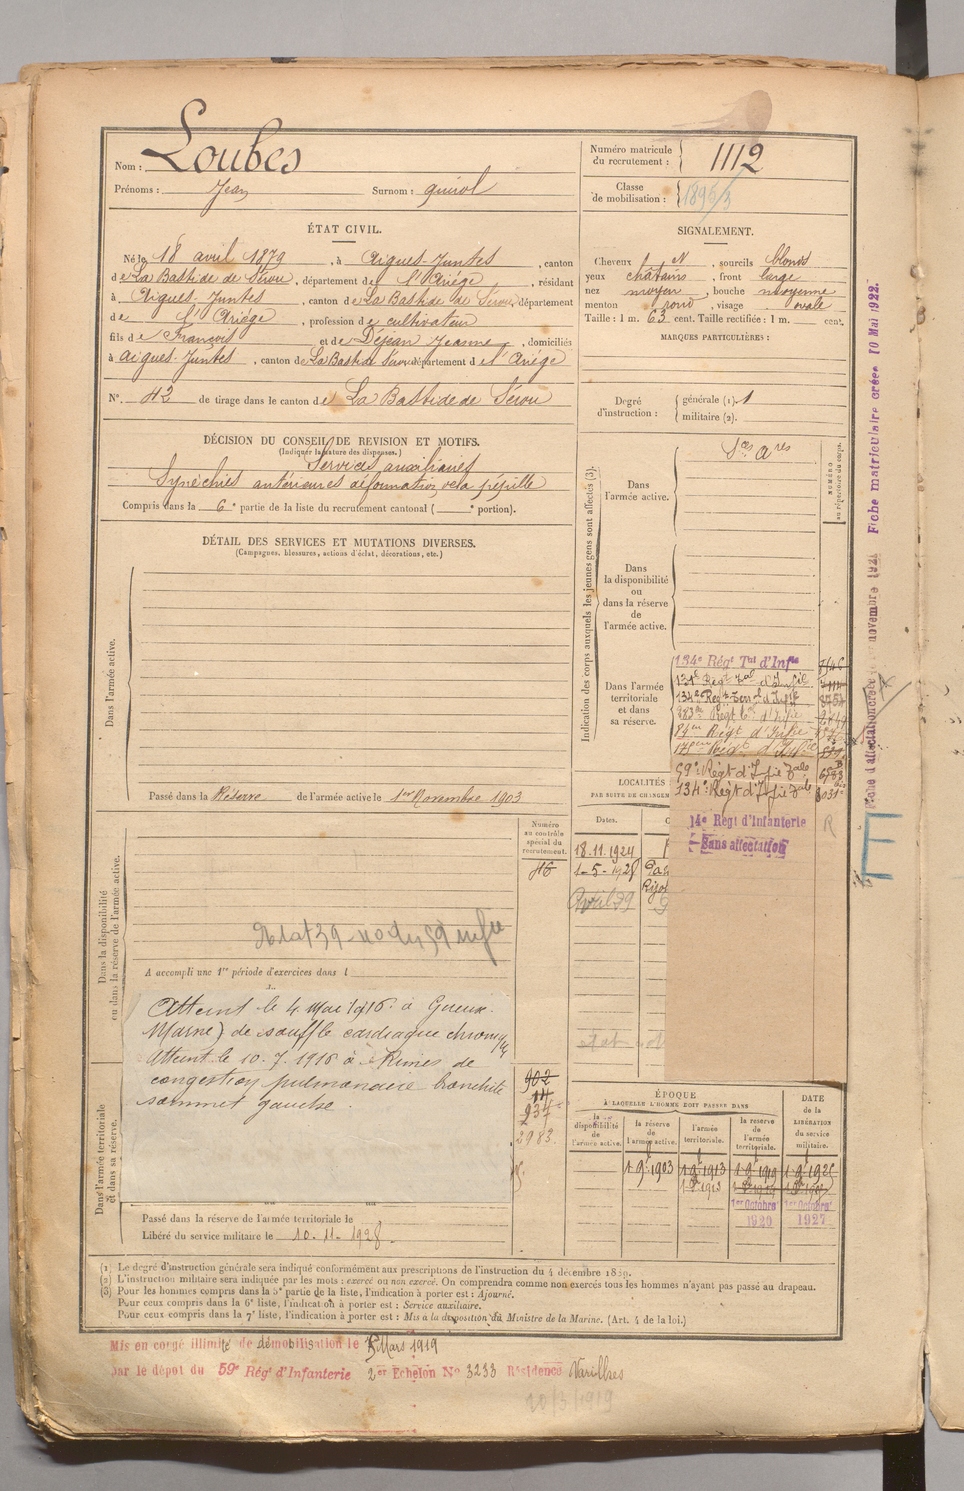 Nom : Loubes
Prénoms : Jean Surnom :
Numéro matricule du recrutement : 1112
Classe de mobilisation :
ÉTAT CIVIL.
Né le 18 avril 1879, à Aigues-Juntes, canton
de La Bastide de Sérou, département de l'Ariége, résidant
à Aigues-Juntes, canton de La Bastide de Sérou, département
de l'Ariége, profession de cultivateur
fils de François et de Déjean Jeanne, domiciliés
à Aigues-Juntes, canton de La Bastide Sérou département de l'Ariége
N° 42 de tirage dans le canton de La Bastide de Sérou
SIGNALEMENT.
Cheveux N, sourcils blonds
yeux chatains, front large
nez moyen, bouche moyenne
menton rond, visage ovale
Taille : 1 m. 63 cent. Taille rectifiée : 1 m. cent.
MARQUES PARTICULIÈRES :
Degré d'instruction : générale (1). 1
militaire (2).
DÉCISION DU CONSEIL DE REVISION ET MOTIFS.
(Indiquer la nature des dispenses.)
Services auxiliaires
Synéchies antérieures déformation de la pupille
Compris dans la 6e partie de la liste du recrutement cantonal ( e portion).
DÉTAIL DES SERVICES ET MUTATIONS DIVERSES.
(Campagnes, blessures, actions d'éclat, décorations, etc.)
Dans l'armée active.
Passé dans la Réserve de l'armée active le 1er Novembre 1903
Indication des corps auxquels les jeunes gens sont affectés (3).
NUMÉRO au répertoire du corps.
Dans l'armée active.
Sces Ares
Dans la disponibilité ou dans la réserve de l'armée active.
Dans l'armée territoriale et dans sa réserve.
134e Régt Tal d'Infie
131e Régt Tal d'Infie
134e Régt Terral d'Infie
83me Régt d'Infie
59e Régt d'Infie
134e Régt d'Infie
14e Régt d'Infanterie
Sans affectation
Fiche matriculaire créée 10 Mai 1922.
LOCALITÉS
PAR SUITE DE CHANGEM
Dates.
18.11.1924
1-5-1928
Avril 39
Numéro au contrôle spécial du recrutement.
46
Dans la disponibilité ou dans la réserve de l'armée active.
A accompli une 1re période d'exercices dans l
Atteint le 4 Mai 1916 à Gueux
Marne) de souffle cardiaque chronique
Atteint le 10.7.1916 à Reims de
congestion pulmonaire bronchite
sommet gauche.
902
14
937
2983
Dans l'armée territoriale et dans sa réserve.
Passé dans la réserve de l'armée territoriale le
Libéré du service militaire le 10.11.1928.
ÉPOQUE
A LAQUELLE L'HOMME DOIT PASSER DANS
la disponibilité de l'armée active.
la réserve de l'armée active.
l'armée territoriale.
la réserve de l'armée territoriale.
DATE de la LIBÉRATION du service militaire.
1 9bre 1903 1 9bre 1913 1 9bre 1919
1er Octobre 1920 1er Octobre 1927
(1) Le degré d'instruction générale sera indiqué conformément aux prescriptions de l'instruction du 4 décembre 1889.
(2) L'instruction militaire sera indiquée par les mots : exercé ou non exercé. On comprendra comme non exercés tous les hommes n'ayant pas passé au drapeau.
(3) Pour les hommes compris dans la 5e partie de la liste, l'indication à porter est : Ajourné.
Pour ceux compris dans la 6e liste, l'indication à porter est : Service auxiliaire.
Pour ceux compris dans la 7e liste, l'indication à porter est : Mis à la disposition du Ministre de la Marine. (Art. 4 de la loi.)
Mis en congé illimité de démobilisation le 5 Mars 1919
par le dépôt du 59e Régt d'Infanterie 2er Echelon No 3233 Résidence Varilhes
20/3/1919